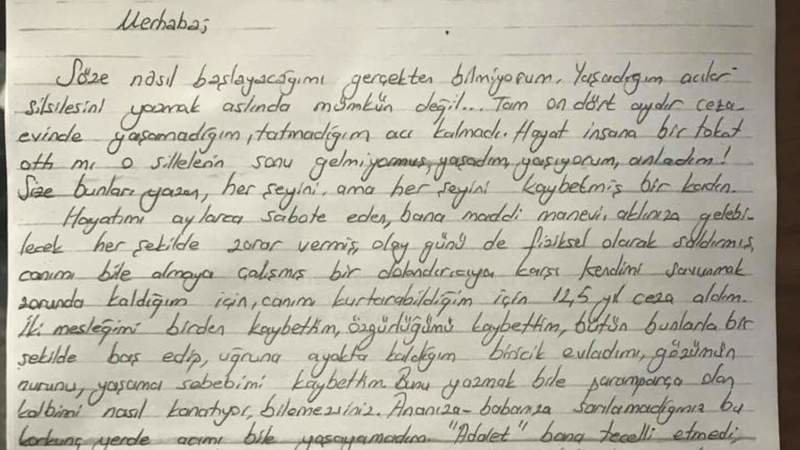 Merhaba;
Söze nasıl başlayacağımı gerçekten bilmiyorum. Yaşadığım acılar
silsilesini yazmak aslında mümkün değil... Tam on dört aydır ceza-
evinde yaşamadığım, tatmadığım acı kalmadı. Hayat insana bir tokat
attı mı o sillelerin sonu gelmiyormuş, yaşadım, yaşıyorum, anladım!
Size bunları yazan, her şeyini, ama her şeyini kaybetmiş bir kadın.
Hayatımı aylarca sabote eden, bana maddi manevi, aklınıza gelebi-
lecek her şekilde zarar vermiş, olay günü de fiziksel olarak saldırmış,
canımı bile almaya çalışmış bir dolandırıcıya karşı kendimi savunmak
zorunda kaldığım için, canımı kurtarabildiğim için 12,5 yıl ceza aldım.
İki mesleğimi birden kaybettim, özgürlüğümü kaybettim, bütün bunlarla bir
şekilde baş edip, uğruna ayakta kaldığım biricik evladımı, gözümün
nurunu, yaşama sebebimi kaybettim. Bunu yazmak bile paramparça olan
kalbimi nasıl kanatıyor, bilemezsiniz. Ananıza-babanıza sarılamadığınız bu
korkunç yerde acımı bile yaşayamadım. "Adalet" bana tecelli etmedi,